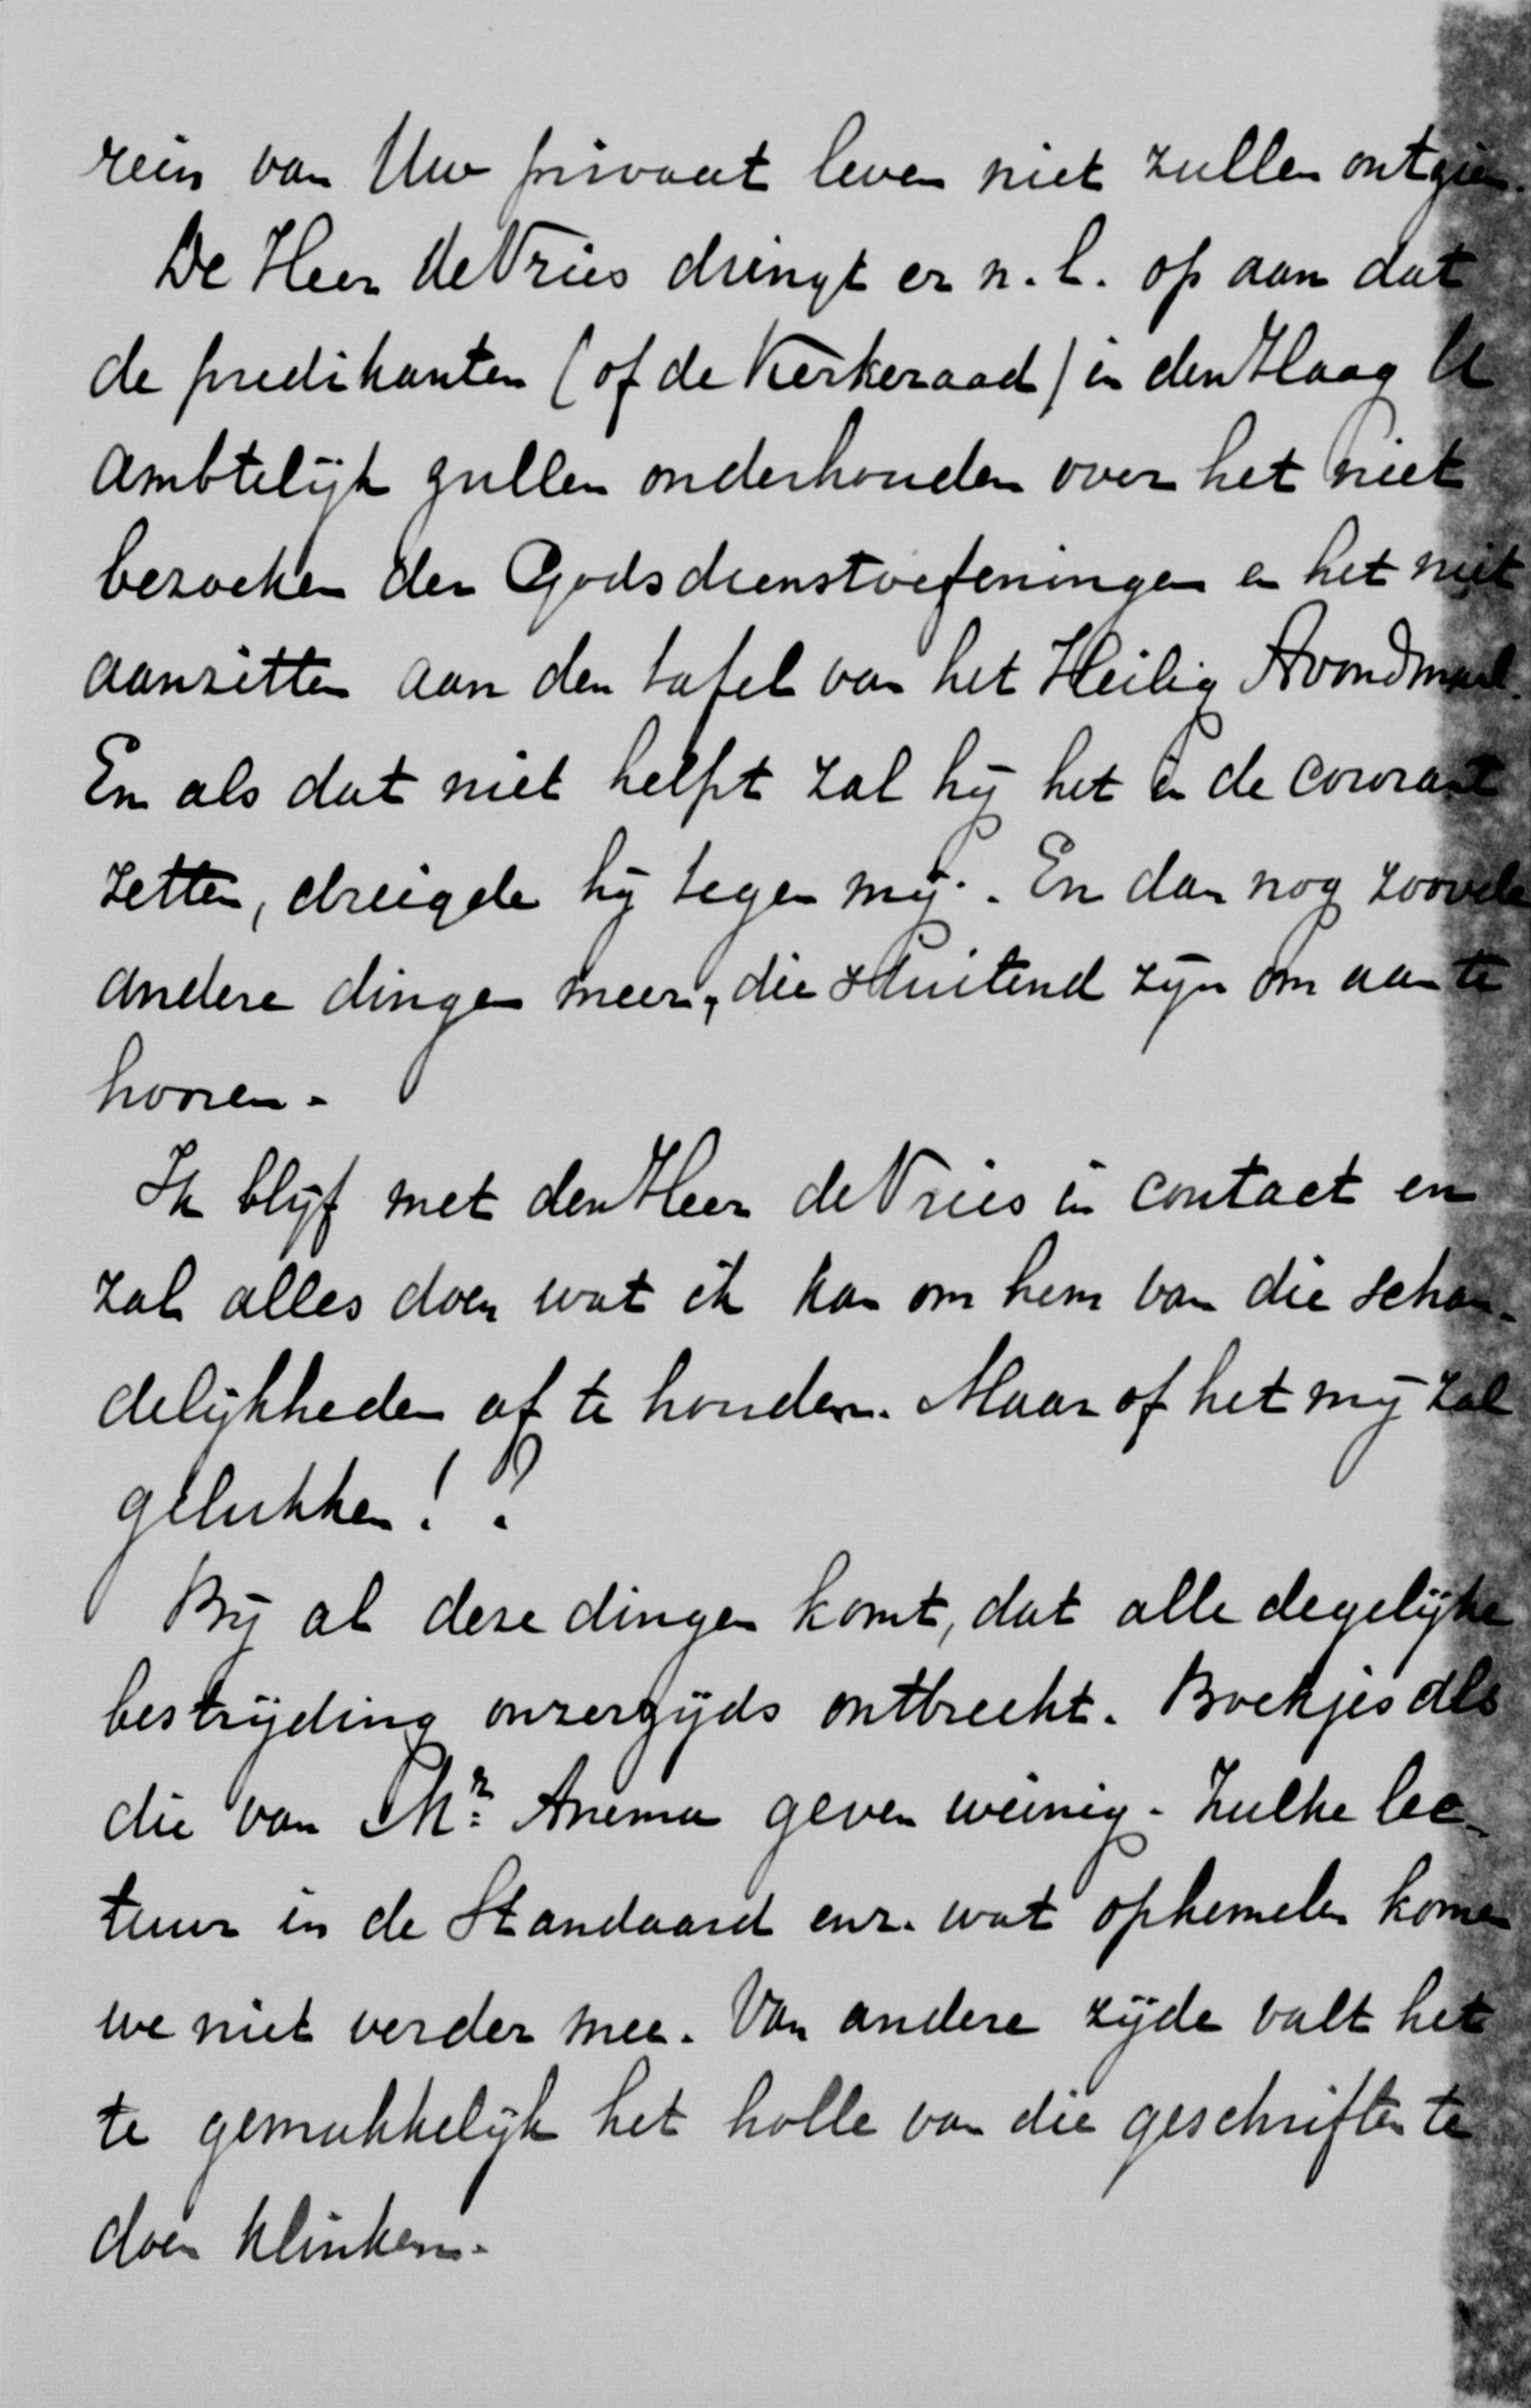 rein van Uw privaat leven niet zullen ontzien.
De Heer de Vries dringt er n.l. op aan dat
de predikanten (of de Kerkeraad) in den Haag U
ambtelijk zullen onderhouden over het niet
bezoeken der Godsdienstoefeningen en het niet
aanzitten aan den tafel van het Heilig Avondmaal.
En als dat niet helpt zal hij het in de courant
zetten, dreigde hij tegen mij. En dan nog zoovele
andere dingen meer, die stuitend zijn om aan te
hooren.
Ik blijf met den Heer de Vries in contact en
zal alles doen wat ik kan om hem van die schan-
delijkheden af te houden. Maar of het mij zal
gelukken! ?
Bij al deze dingen komt, dat alle degelijke
bestrijding onzerzijds ontbreekt. Boekjes als
die van Mr. Anema geven weinig. Zulke lec-
tuur in de Standaard enz. wat ophemelen komen
we niet verder mee. Van andere zijde valt het
te gemakkelijk het holle van die geschriften te
doen klinken.